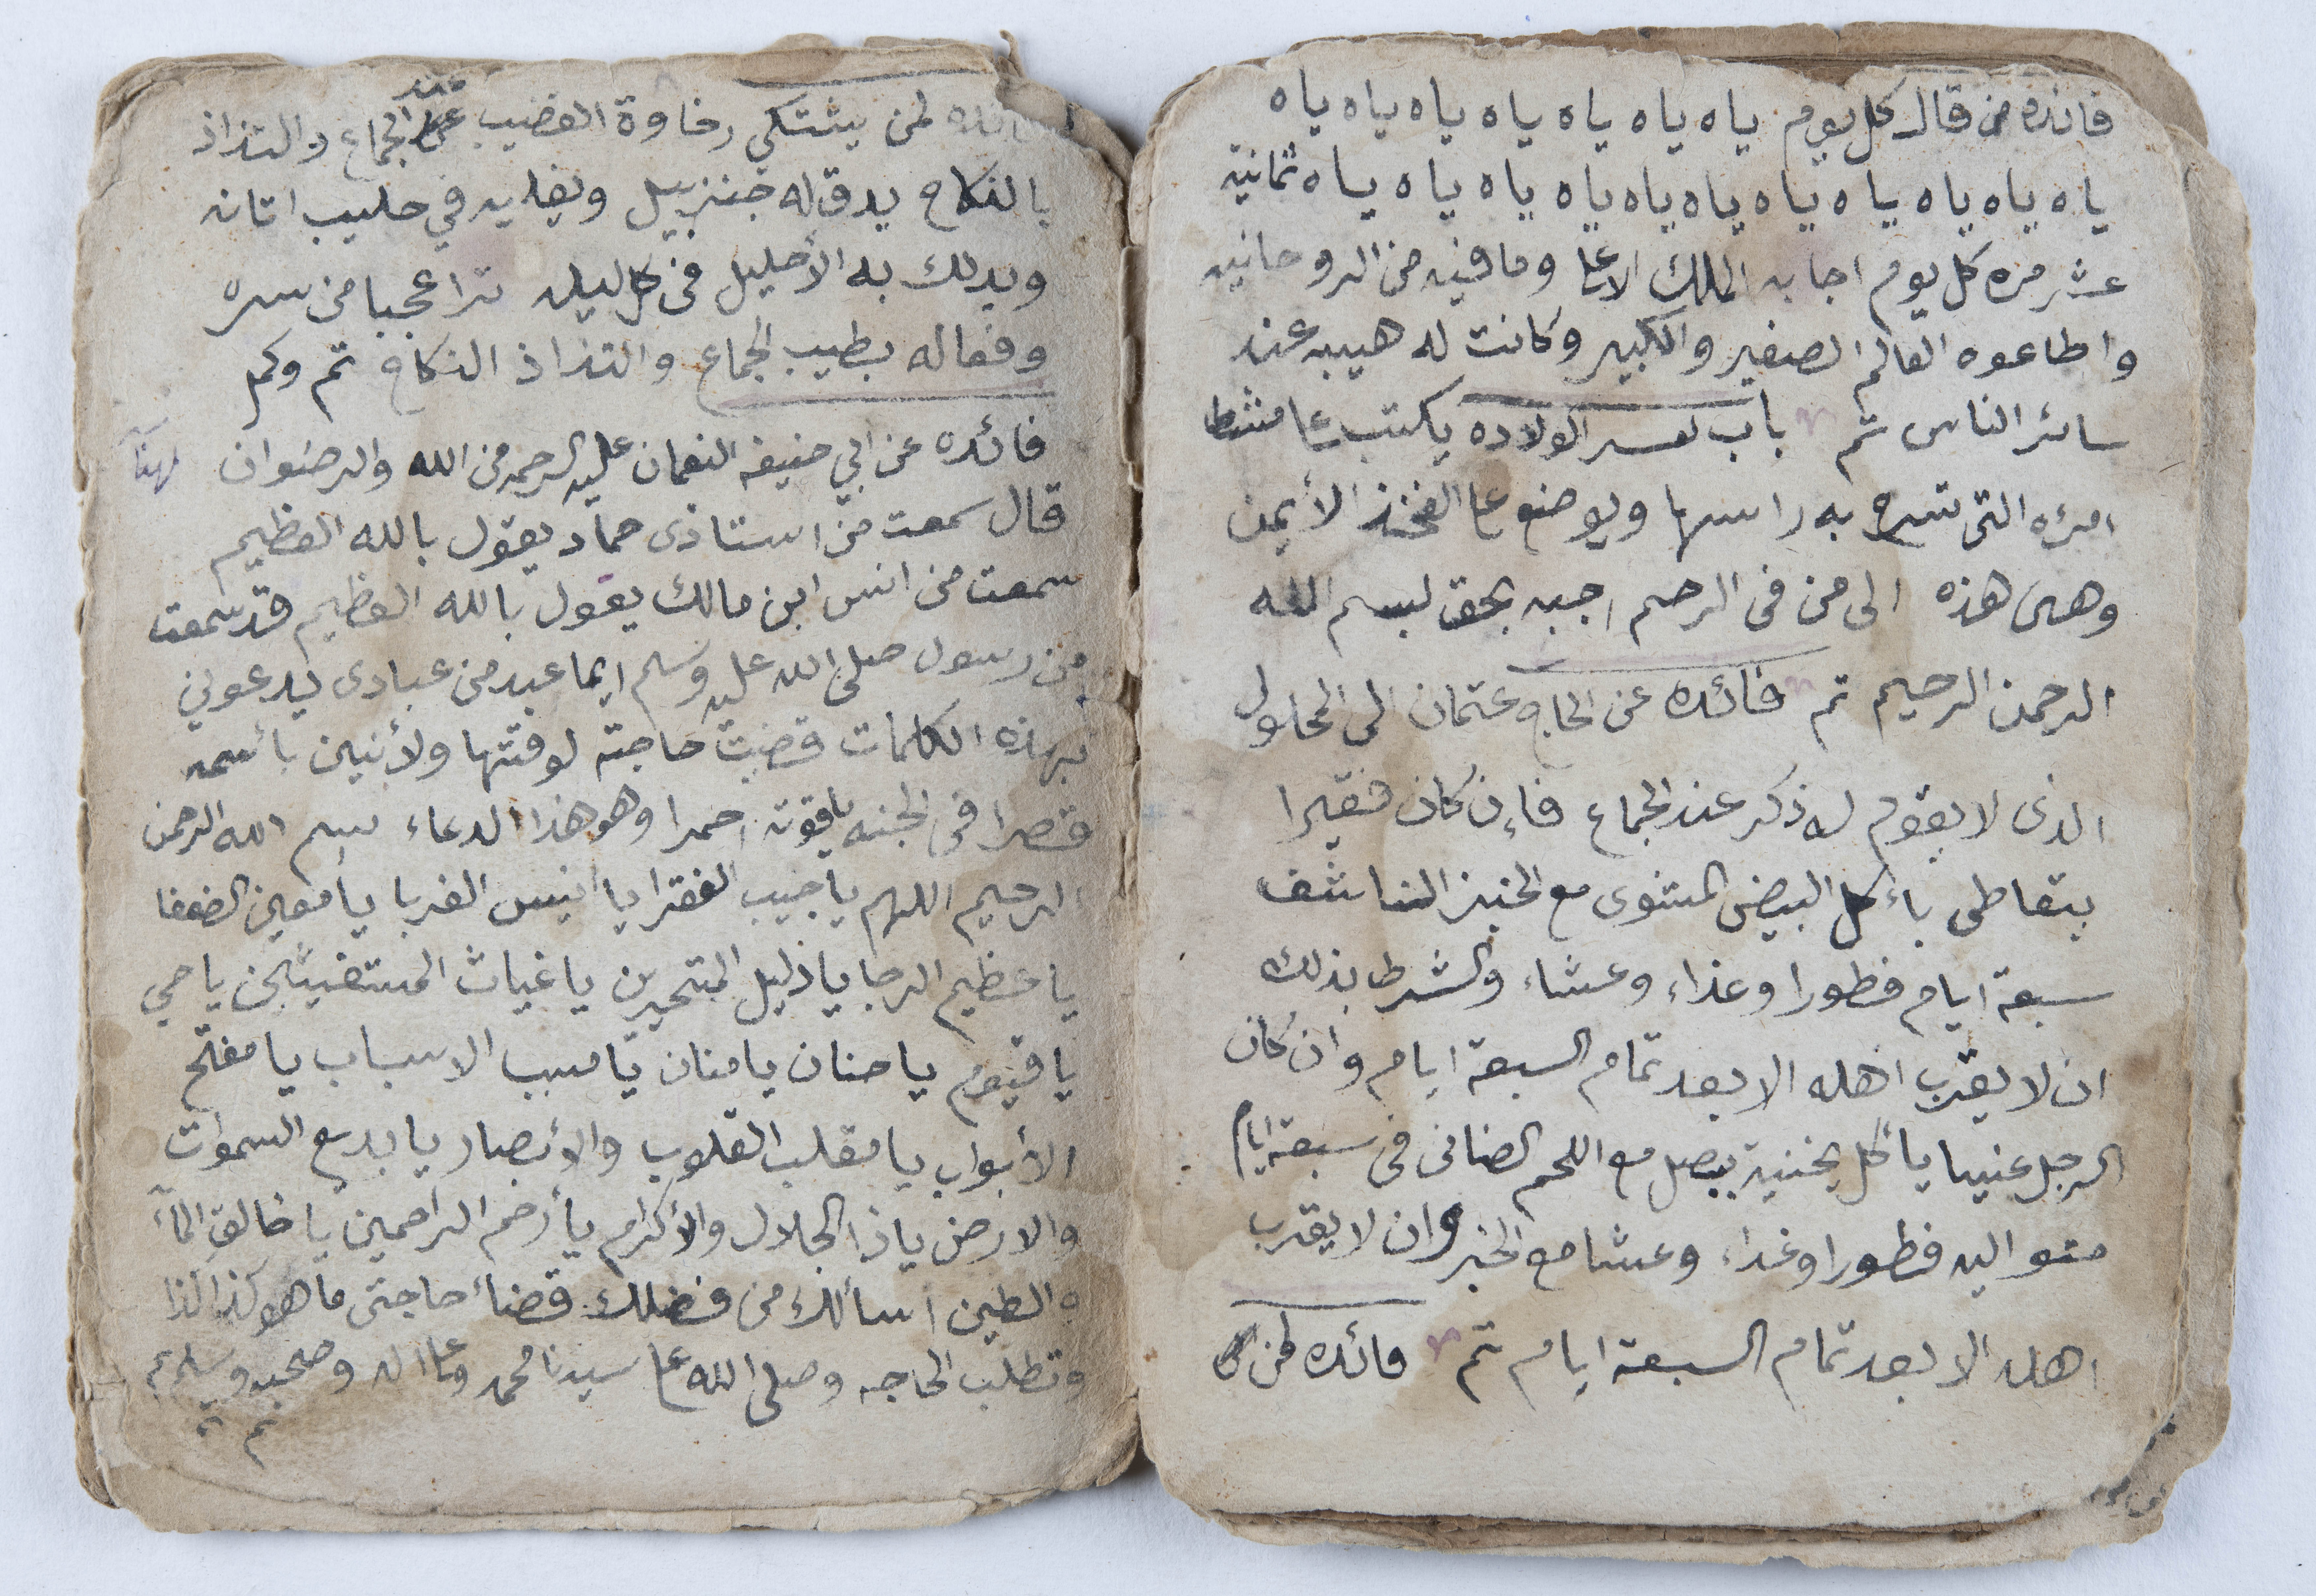 فائده من قال كل يوم ياه ياه ياه ياه ياه ياه ياه
ياه ياه ياه ياه ياه ياه ياه ياه ياه ياه ياه ثمانية
عشر مره كل يوم اجابه الملك الاعلا وما فيه من الروحانيه
واطاعوه العالم الصغير والكبير وكانت له هيبه عند
سائر الناس تم باب لعسر الولاده يكتب علا مشط
امرئه التى تسرح به راسها ويوضع علا الفخذ الأيمن
وهى هذه الى من فى الرحم اجبه بحق بسم الله
الرحمن الرحيم تم فائده عن الحاج عتمان الى المحلول
الذى لا يقوم له ذكر عند الجماع فإن كان فقيرا
يتعاطى بأكل البيض المشوى مع الخبز الناشف
سبعة ايام فطورا وغذاء وعشاء والشرط بذلك
ان لا يقرب اهله الا بعد تمام السبعة ايام وان كان
الرجل غنيا يأكل يخنية ببصل مع اللحم الضانى فى سبعة ايام
متواليه فطورا وغداء وعشا مع الخبز وان لا يقترب
اهله الا بعد تمام السبعة ايام تم فائده لمن
لمن يشتكي رخاوة القضيب عند الجماع والتذاذ
بالنكاح يدق له جنزبيل ويغليه في حليب اتانه
ويدلك به الأحليل فى كل ليله ترا عجبا من سره
وفعاله بطيب الجماع والتذاذ النكاح تم وكمل
فائده عن ابي حنيفه النعمان عليه الرحمه من الله والرضوان
قال سمعت من استاذى حماد يقول بالله العظيم
سمعت من انس ابن مالك يقول بالله العظيم قد سمعت
من رسول صلى الله عليه وسلم ايما عبد من عبادى يدعوني
بهذه الكلمات قضيت حاجته لوقتها ولأبنين بأسمه
قصرا فى الجنه ياقوته احمرا وهو هذا الدعاء بسم الله الرحمن
الرحيم اللهم يا حبيب الفقرا يا انيس الغربا يا معين الضعفا
يا عظيم الرجا يا دليل المتحيرين يا غياث المستغيثين يا حي
يا قيوم يا حنان يا منان يا مسبب الاسباب يا مفتح
الأبواب يا مقلب القلوب والأبصار يا بديع السموات
والارض ياذا الجلال والأكرام يا أرحم الراحمين يا خالق المآء
والطين اسألك من فضلك قضاء حاجتى ما هو كذا لكذا
وتطلب الحاجه وصلى الله علا سيدنا محمد وعلا اله وصحبه وسلم
تم